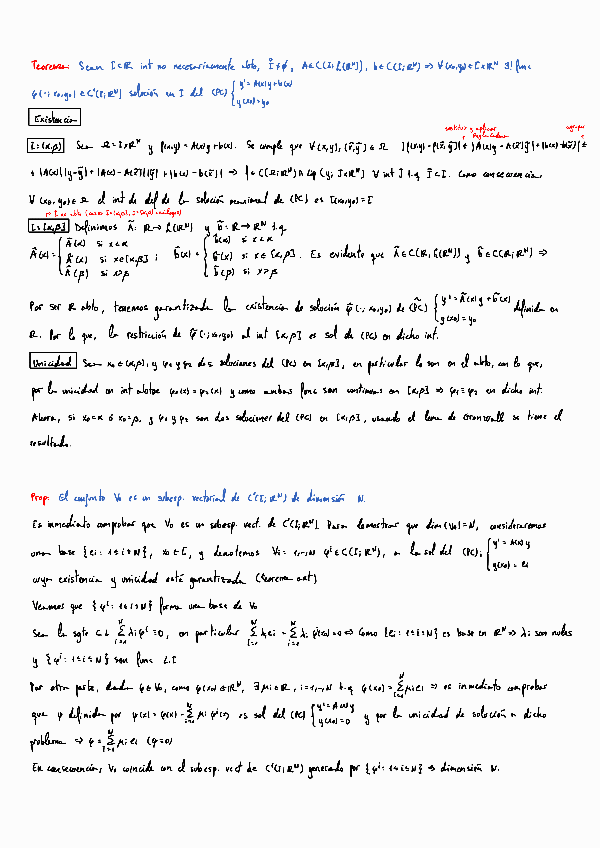 Teorema: Sean I⊂R int no necesariamente abto, I̊≠∅, A∈C(I;L(R^N)), b∈C(I;R^N) ⇒ ∀(x0,y0)∈I×R^N ∃! func
φ(·;x0,y0)∈C¹(I;R^N) solución en I del (PC) { y'=A(x)y+b(x)
y(x0)=y0
Existencia
sustituir y aplicar
I=(α,β) Sea Ω=I×R^N y f(x,y)=A(x)y+b(x). Se cumple que ∀(x,y),(x̄,ȳ)∈Ω |f(x,y)-f(x̄,ȳ)|≤|A(x)y-A(x̄)ȳ|+|b(x)-b(x̄)|≤
≤|A(x)||y-ȳ|+|A(x)-A(x̄)||ȳ|+|b(x)-b(x̄)| ⇒ f∈C(Ω;R^N)∩Lip(y;J×R^N) ∀ int J t.q. J̄⊂I. Como consecuencia
∀(x0,y0)∈Ω el int de def de la solución maximal de (PC) es I(x0,y0)=I
I=[α,β] Definimos Ã:R→L(R^N) y b̃:R→R^N t.q.
Ã(x)= { A(α) si x<α
A(x) si x∈[α,β]
A(β) si x>β ; b̃(x)= { b(α) si x<α
b(x) si x∈[α,β]
b(β) si x>β . Es evidente que Ã∈C(R;L(R^N)) y b̃∈C(R;R^N) ⇒
Por ser R abto, tenemos garantizada la existencia de solución φ̃(·;x0,y0) de (PC~) { y'=Ã(x)y+b̃(x)
y(x0)=y0 definida en
R. Por lo que, la restricción de φ̃(·;x0,y0) al int [α,β] es sol de (PC) en dicho int.
Unicidad Sean x0∈(α,β), y φ1 y φ2 dos soluciones del (PC) en [α,β], en particular lo son en el abto, con lo que,
por la unicidad en int abtos φ1(x)=φ2(x) y como ambas func son continuas en [α,β] ⇒ φ1=φ2 en dicho int.
Ahora, si x0=α ó x0=β, y φ1 y φ2 son dos soluciones del (PC) en [α,β], usando el lema de Gronwall se tiene el
resultado.
Prop: El conjunto V0 es un subesp. vectorial de C¹(I;R^N) de dimensión N.
Es inmediato comprobar que V0 es un subesp. vect. de C¹(I;R^N). Para demostrar que dim(V0)=N, consideraremos
una base {ei: 1≤i≤N}, x0∈I, y denotemos ∀i=1,..,N φ^i∈C¹(I;R^N), a la sol del (PC)i { y'=A(x)y
y(x0)=ei
cuya existencia y unicidad está garantizada (teorema ant)
Veamos que {φ^i: 1≤i≤N} forma una base de V0
Sea la sgte C.L ∑λiφ^i=0, en particular ∑λiei=∑λiφ^i(x0)=0 ⇔ Como {ei: 1≤i≤N} es base en R^N ⇒ λi son nulos
y {φ^i: 1≤i≤N} son func L.I
Por otra parte, dada φ∈V0, como φ(x0)∈R^N, ∃ μi∈R, i=1,..,N t.q φ(x0)=∑μiei ⇒ es inmediato comprobar
que ψ definida por ψ(x)=φ(x)-∑μiφ^i(x) es sol del (PC) { y'=A(x)y
y(x0)=0 y por la unicidad de solución a dicho
problema ⇒ φ=∑μiei (ψ=0)
En consecuencia, V0 coincide con el subesp. vect de C¹(I;R^N) generado por {φ^i: 1≤i≤N} ⇒ dimensión N.